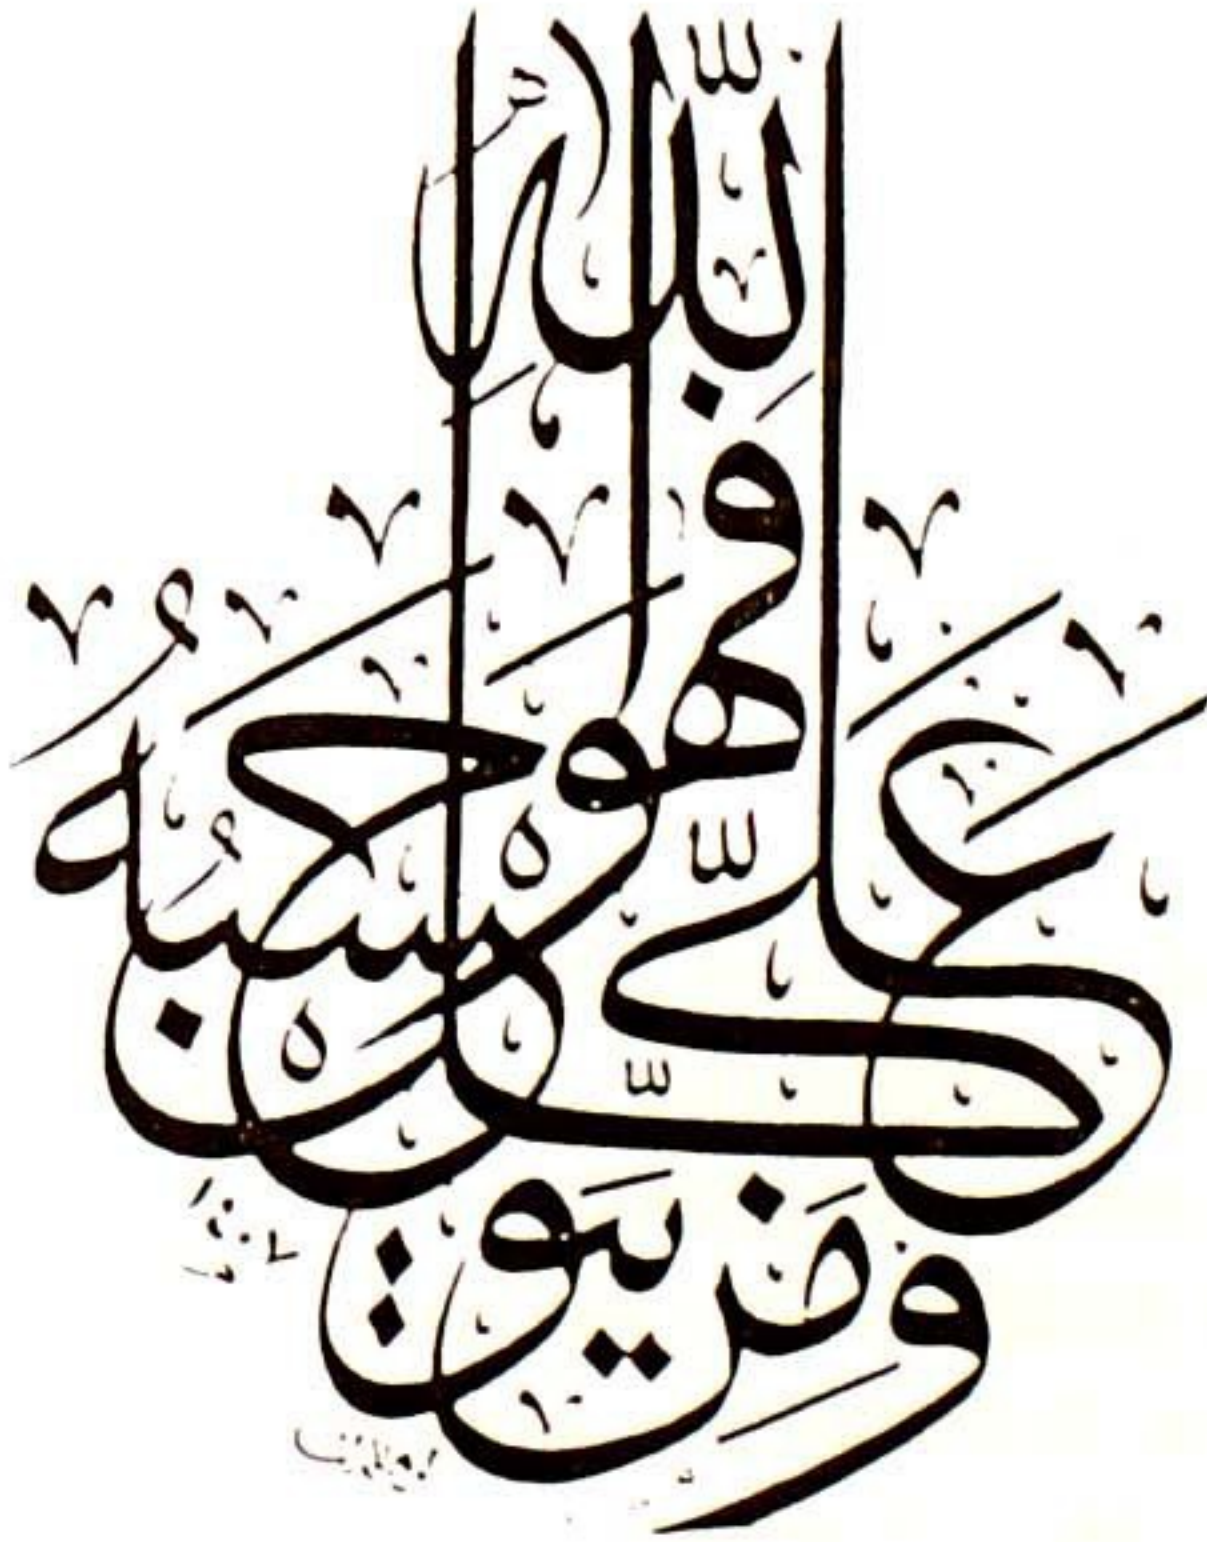 وَمَن يَتَوَكَّلْ عَلَى اللَّهِ فَهُوَ حَسْبُهُ